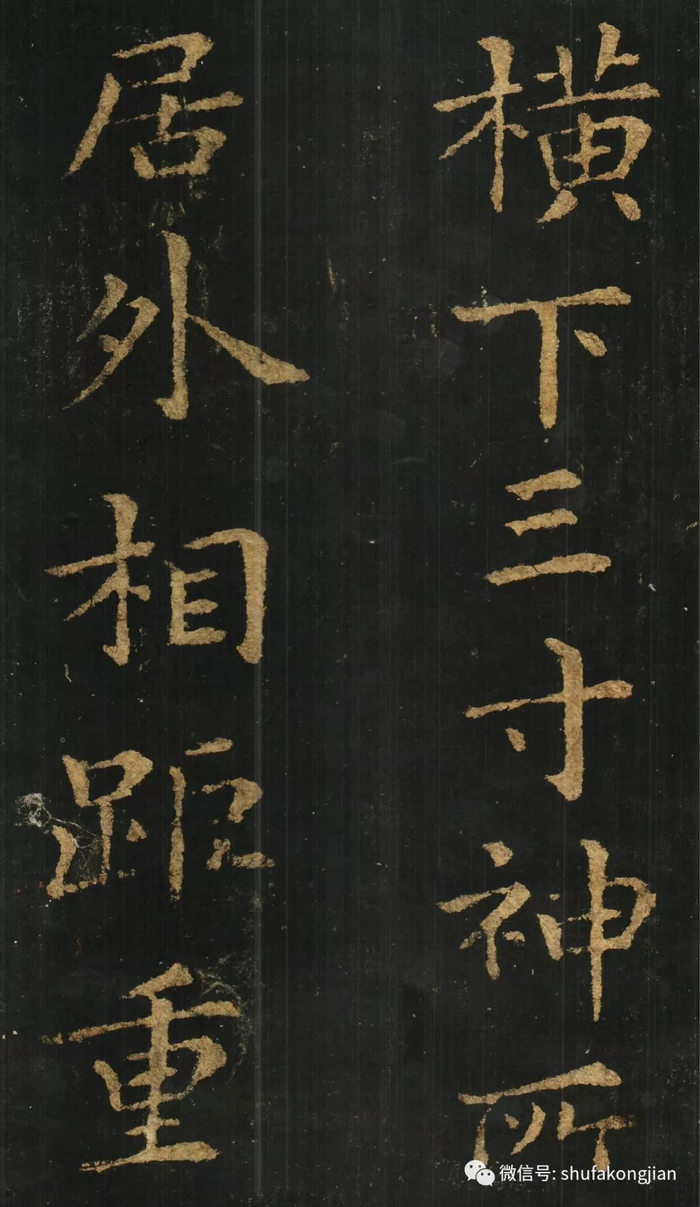 横下三寸神所
居外相距重
微信号: shufakongjian